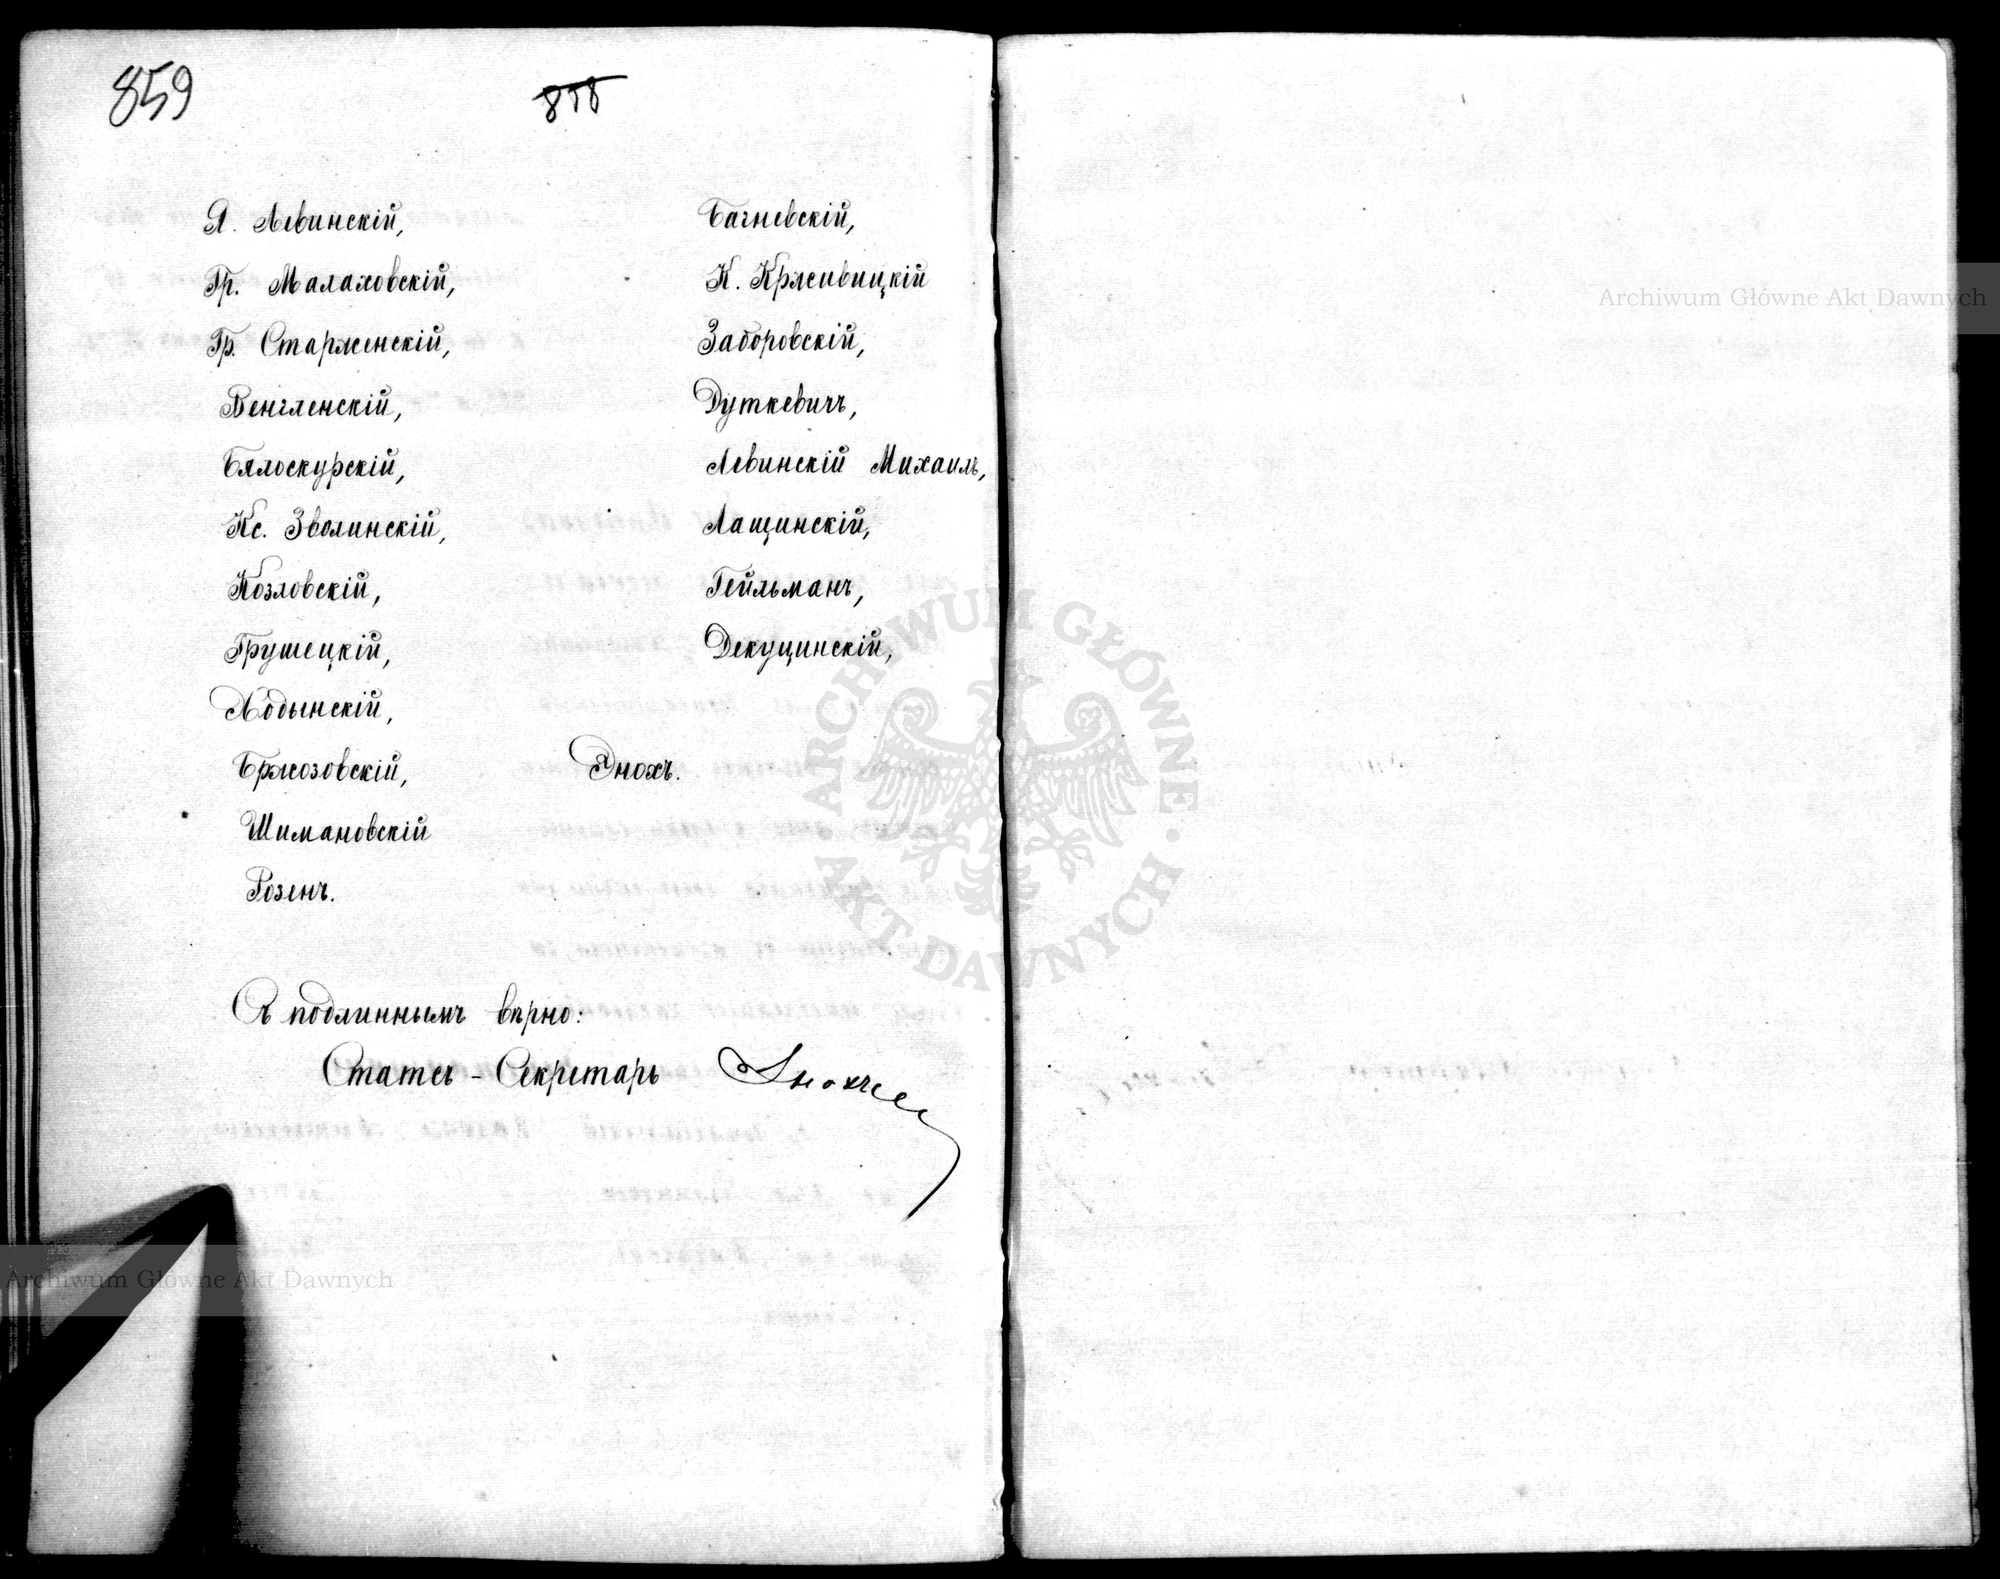 859
858
Я. Левинскій,
Гр. Малаховскій,
Гр. Старженскій,
Венгленскій,
Бялоскурскій,
Кс. Зволинскій,
Козловскій,
Грушецкій,
Лодынскій,
Бржозовскій,
Шимановскій
Розенъ.
Багневскій,
К. Крженвицкій
Заборовскій,
Дуткевичъ,
Левинскій Михаилъ,
Лащинскій,
Гейльманъ,
Декуцинскій,
Энохъ.
Съ подлиннымъ вѣрно:
Статсъ-Секретарь Энохъ
Archiwum Główne Akt Dawnych
Archiwum Główne Akt Dawnych
ARCHIWUM GŁÓWNE AKT DAWNYCH